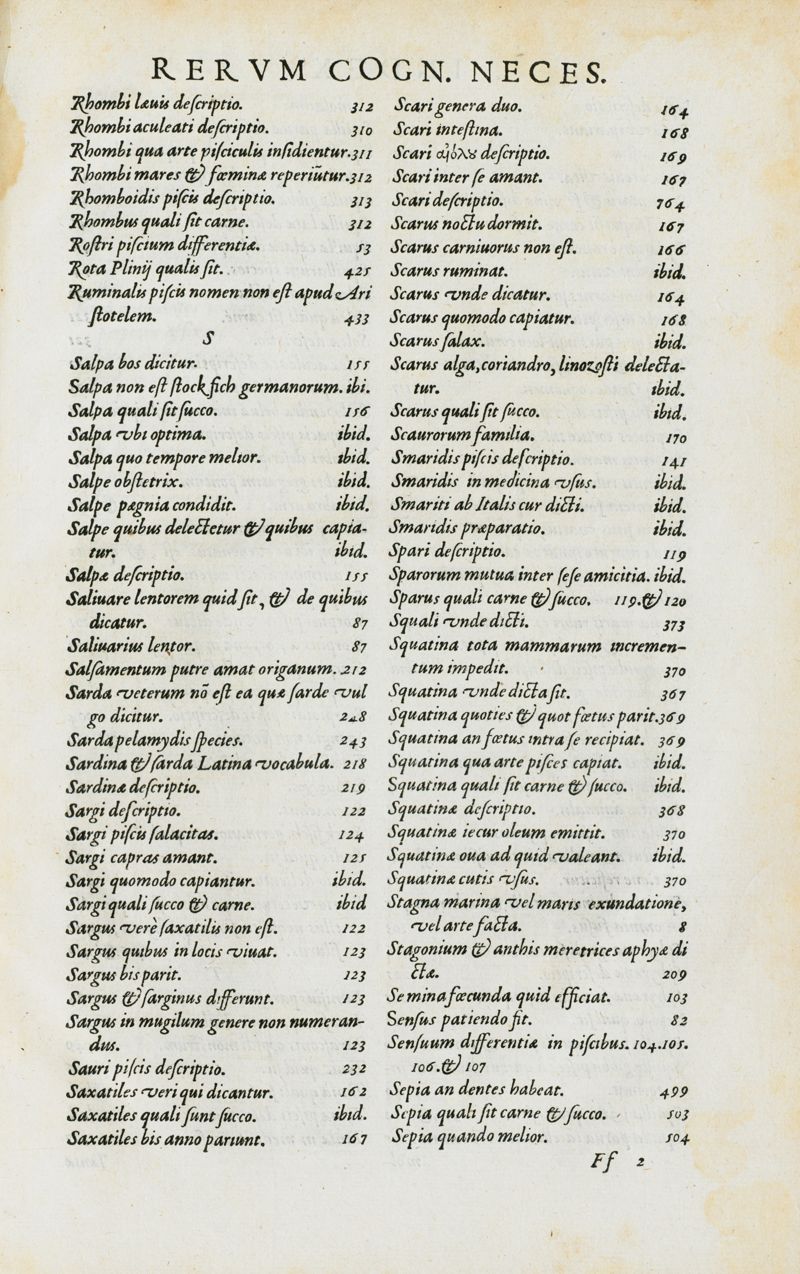 RERVM COGN. NECES.
Rhombi læuis deſcriptio. 312
Rhombi aculeati deſcriptio. 310
Rhombi qua arte piſciculis inſidientur. 311
Rhombi mares & fœminæ reperiūtur. 312
Rhomboidis piſcis deſcriptio. 313
Rhombus quali ſit carne. 312
Roſtri piſcium differentiæ. 53
Rota Plinij qualis ſit. 425
Ruminalis piſcis nomen non eſt apud Ari
ſtotelem. 433
S
Salpa bos dicitur. 155
Salpa non eſt ſtockfich germanorum. ibi.
Salpa quali ſit ſucco. 156
Salpa vbi optima. ibid.
Salpa quo tempore melior. ibid.
Salpe obſtetrix. ibid.
Salpe pægnia condidit. ibid.
Salpe quibus delectetur & quibus capia-
tur. ibid.
Salpæ deſcriptio. 155
Saliuare lentorem quid ſit, & de quibus
dicatur. 87
Saliuarius lentor. 87
Salſamentum putre amat origanum. 212
Sarda veterum nō eſt ea quæ ſarde vul
go dicitur. 248
Sarda pelamydis ſpecies. 243
Sardina & ſarda Latina vocabula. 218
Sardinæ deſcriptio. 219
Sargi deſcriptio. 122
Sargi piſcis ſalacitas. 124
Sargi capras amant. 125
Sargi quomodo capiantur. ibid.
Sargi quali ſucco & carne. ibid
Sargus verè ſaxatilis non eſt. 122
Sargus quibus in locis viuat. 123
Sargus bis parit. 123
Sargus & ſarginus differunt. 123
Sargus in mugilum genere non numeran-
dus. 123
Sauri piſcis deſcriptio. 232
Saxatiles veri qui dicantur. 162
Saxatiles quali ſunt ſucco. ibid.
Saxatiles bis anno pariunt. 167
Scari genera duo. 164
Scari inteſtina. 168
Scari αἰόλου deſcriptio. 169
Scari inter ſe amant. 167
Scari deſcriptio. 764
Scarus noctu dormit. 167
Scarus carniuorus non eſt. 166
Scarus ruminat. ibid.
Scarus vnde dicatur. 164
Scarus quomodo capiatur. 168
Scarus ſalax. ibid.
Scarus alga, coriandro, linozoſti delecta-
tur. ibid.
Scarus quali ſit ſucco. ibid.
Scaurorum familia. 170
Smaridis piſcis deſcriptio. 141
Smaridis in medicina vſus. ibid.
Smariti ab Italis cur dicti. ibid.
Smaridis præparatio. ibid.
Spari deſcriptio. 119
Sparorum mutua inter ſeſe amicitia. ibid.
Sparus quali carne & ſucco. 119.& 120
Squali vnde dicti. 373
Squatina tota mammarum incremen-
tum impedit. 370
Squatina vnde dicta ſit. 367
Squatina quoties & quot fœtus parit. 369
Squatina an fœtus intra ſe recipiat. 369
Squatina qua arte piſces capiat. ibid.
Squatina quali ſit carne & ſucco. ibid.
Squatinæ deſcriptio. 368
Squatinæ iecur oleum emittit. 370
Squatinæ oua ad quid valeant. ibid.
Squatinæ cutis vſus. 370
Stagna marina vel maris exundatione,
vel arte facta. 8
Stagonium & anthis meretrices aphyæ di
ctæ. 209
Semina fœcunda quid efficiat. 103
Senſus patiendo fit. 82
Senſuum differentiæ in piſcibus. 104.105.
106.& 107
Sepia an dentes habeat. 499
Sepia quali ſit carne & ſucco. 503
Sepia quando melior. 504
Ff 2